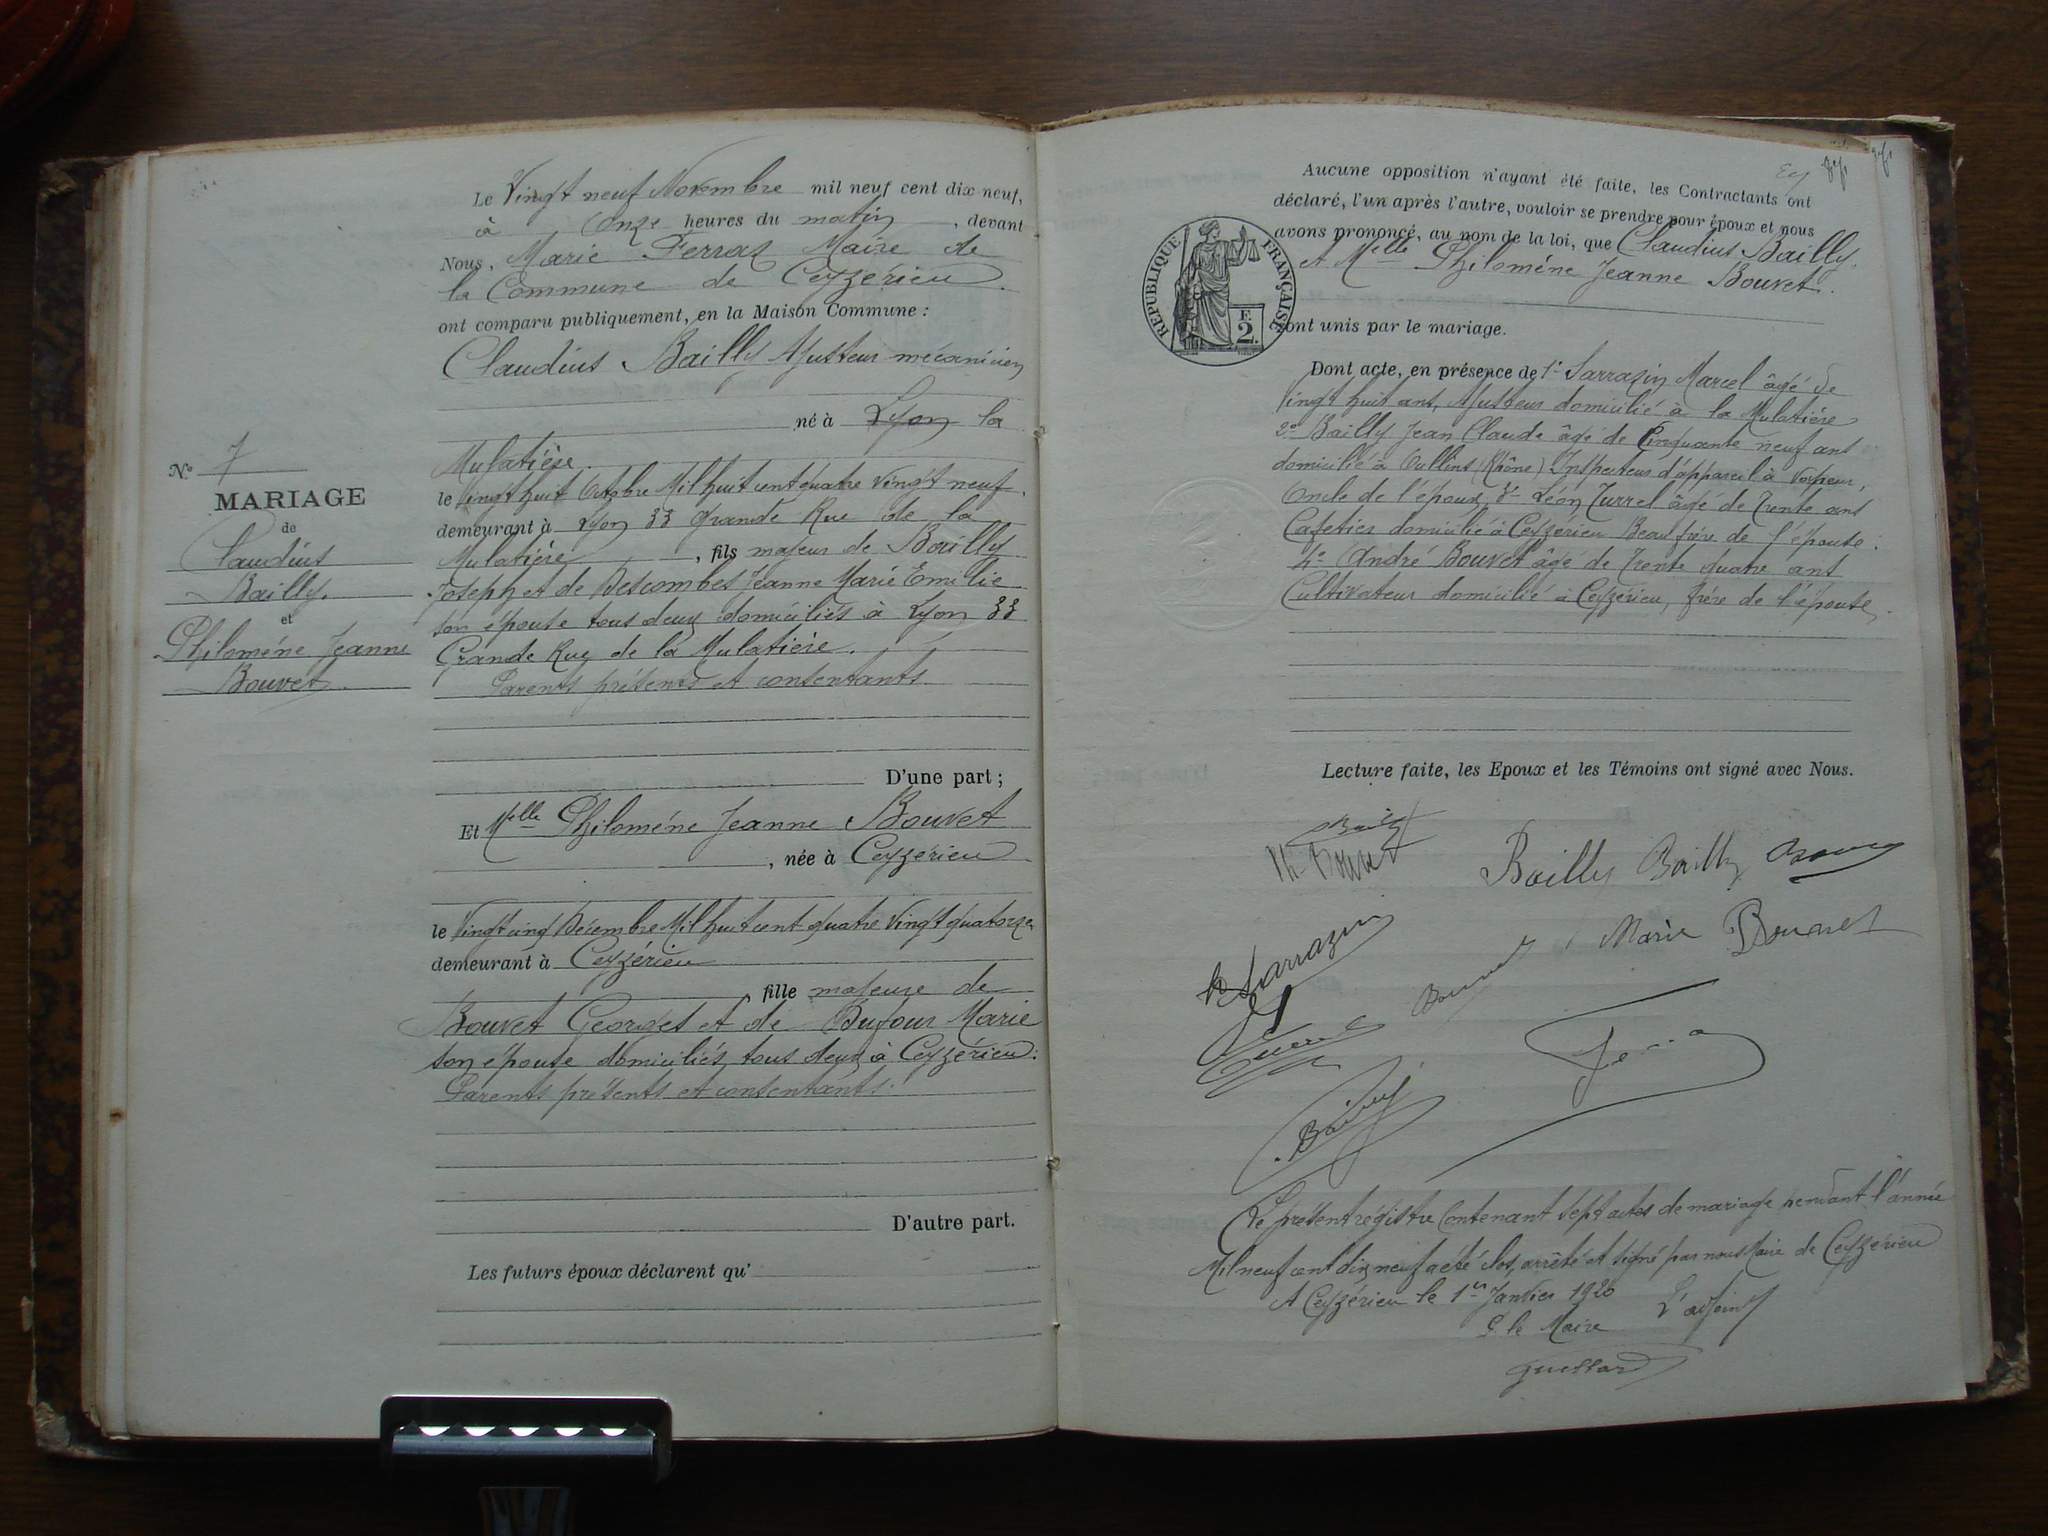 Le Vingt neuf Novembre mil neuf cent dix neuf,
à Onze heures du matin, devant
Nous, Marie Ferraz Maire de
la Commune de Ceyzérieu.
ont comparu publiquement, en la Maison Commune :
Claudius Bailly Ajusteur mécanicien
né à Lyon la
Mulatière
le Vingt huit Octobre Mil huit cent quatre Vingt neuf,
demeurant à Lyon 33 Grande Rue de la
Mulatière, fils majeur de Bailly
Joseph et de Descombes Jeanne Marie Emilie
son épouse tous deux domiciliés à Lyon 33
Grande Rue de la Mulatière.
Parents présents et consentants
N° 7
MARIAGE
de
Claudius
Bailly.
et
Philoméne Jeanne
Bouvet
D'une part ;
Et Melle Philoméne Jeanne Bouvet
, née à Ceyzérieu
le Vingt cinq Décembre Mil huit cent quatre Vingt quatorze
demeurant à Ceyzérieu
, fille majeure de
Bouvet Georges et de Dufour Marie
son épouse domiciliés tous deux à Ceyzérieu.
Parents présents et consentants.
D'autre part.
Les futurs époux déclarent qu'
Aucune opposition n'ayant été faite, les Contractants ont
déclaré, l'un après l'autre, vouloir se prendre pour époux et nous
avons prononcé, au nom de la loi, que Claudius Bailly.
et Melle Philoméne Jeanne Bouvet.
sont unis par le mariage.
RÉPUBLIQUE FRANÇAISE
F.
2.
Dont acte, en présence de 1° Sarrazin Marcel âgé de
Vingt huit ans, Ajusteur domicilié à la Mulatière
2° Bailly Jean Claude âgé de Cinquante neuf ans
domicilié à Oullins (Rhône) Inspecteur d'appareil à Vapeur,
Oncle de l'époux, 3° Léon Turrel âgé de Trente ans
Cafetier domicilié à Ceyzérieu Beau frére de l'épouse.
4° André Bouvet âgé de Trente quatre ans
Cultivateur domicilié à Ceyzérieu, frére de l'épouse.
Lecture faite, les Epoux et les Témoins ont signé avec Nous.
Bailly Bailly
Sarrazin
Marie Bouvet
Bailly
Le présent régistre Contenant sept actes de mariage pendant l'année
Mil neuf cent dix neuf a été clos, arrêté et signé par nous Maire de Ceyzérieu
A Ceyzérieu le 1er Janvier 1920
P. le Maire L'adjoint